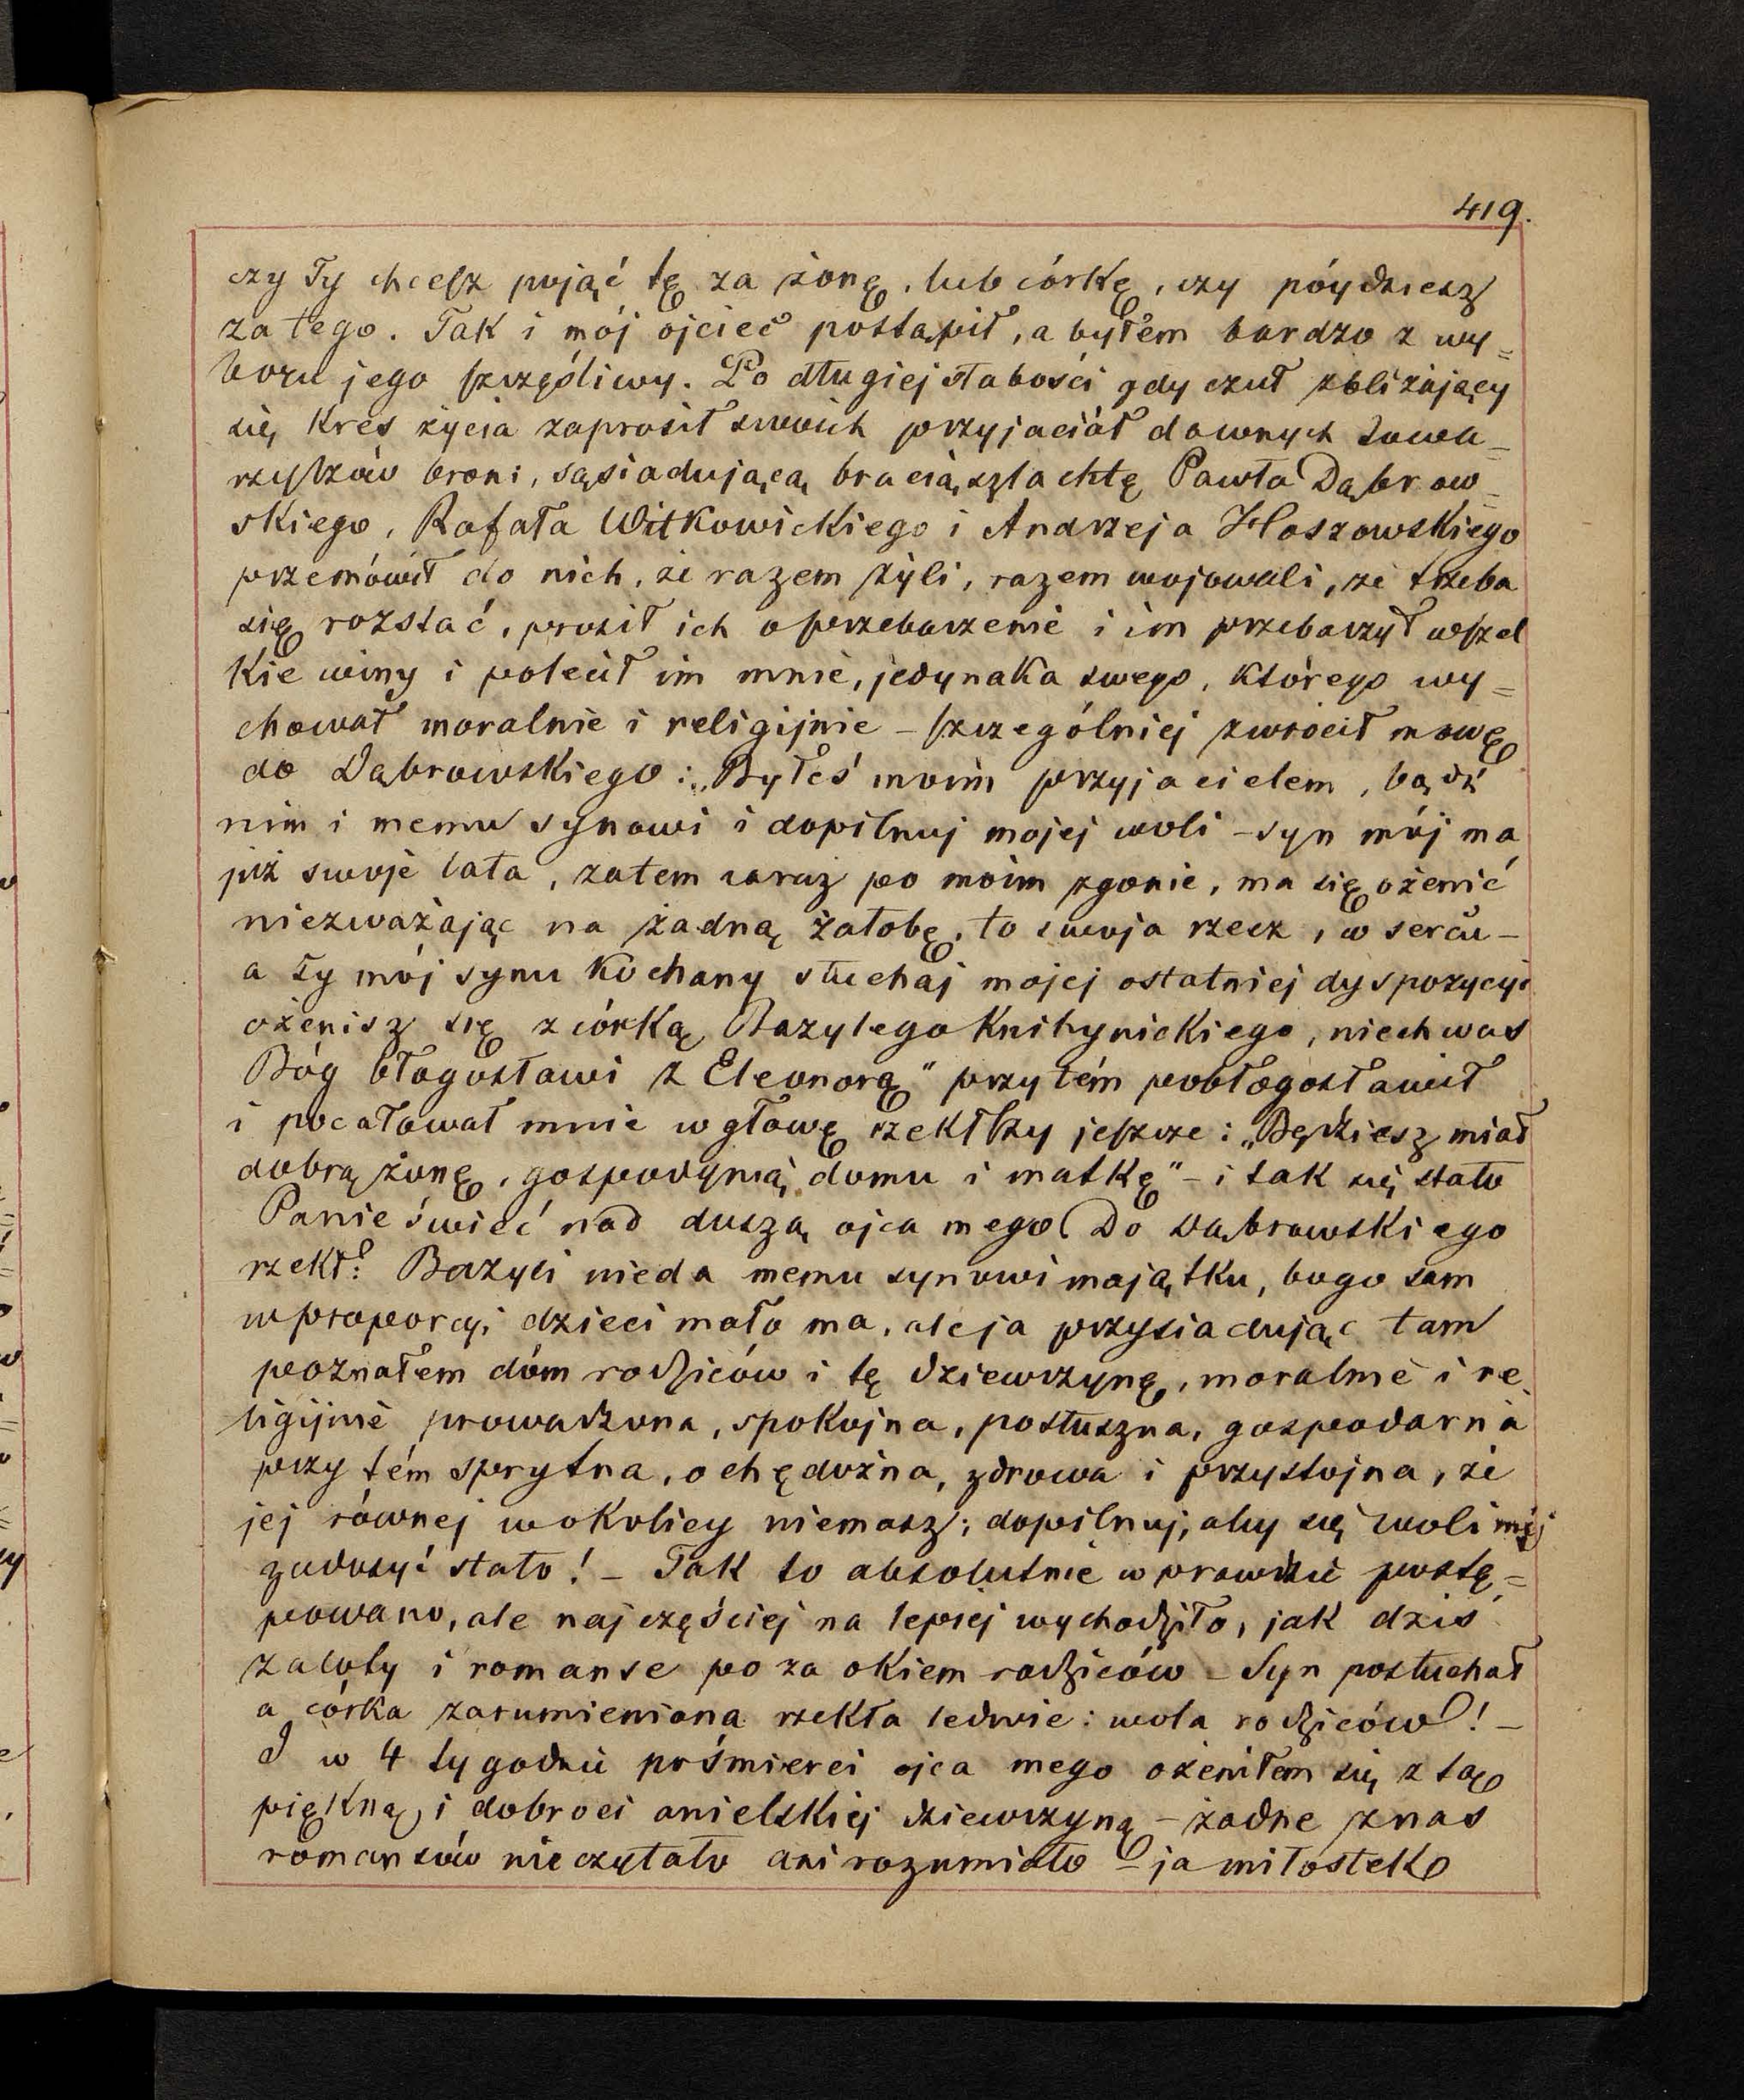 419.
czy Ty chcesz pojąć tę za żonę, lub córkę, czy póydziesz
za tego. Tak i mój ojcieć postąpił, a byłem bardzo z wy=
boru jego szczęśliwy. Po długiej słabości gdy czuł zbliżający
się kres życia zaprosił swoich przyjaciół dawnych towa=
rzyszów broni, sąsiadującą bracią szlachtę Pawła Dąbrow=
skiego, Rafała Witkowickiego i Andrzeja Hoszowskiego
przemówił do nich, że razem żyli, razem wojowali, że trzeba
się rozstać, prosił ich o przebaczenie i im przebaczył wszel
kie winy i polecił im mnie, jedynaka swego, którego wy=
chował moralnie i religijnie – szczególniej zwrócił mowę
do Dąbrowskiego: „Byłeś moim przyjacielem, bądź
nim i memu synowi i dopilnuj mojej woli – syn mój ma
już swoje lata, zatem zaraz po moim zgonie, ma się ożenić
niezważając na żadną żałobę, to swoja rzecz, w sercu –
a Ty mój synu kochany słuchaj mojej ostatniej dyspozycyi
ożenisz się z córką Bazylego Knihynickiego, niech was
Bóg błogosławi z Eleonorą" przytém pobłogosławił
i pocałował mnie w głowę rzekłszy jeszcze: „Będziesz miał
dobrą żonę, gospodynią domu i matkę" – i tak się stało
Panie świeć nad duszą ojca mego! Do Dąbrowskiego
rzekł: Bazyli nieda memu synowi majątku, bo go sam
w proporcyi dzieci mało ma, ale ja przysiadując tam
poznałem dóm rodziców i tę dziewczynę, moralnie i re
ligijnie prowadzona, spokojna, posłuszna, gospodarna
przy tém sprytna, ochędożna, zdrowa i przystojna, że
jej równej w okolicy niemasz; dopilnuj, aby się woli mej
zadosyć stało! – Tak to absolutnie w prawdzie postę=
powano, ale najczęściej na lepiej wychodziło, jak dziś
zaloty i romanse po za okiem rodziców – Syn posłuchał
a córka zarumieniona rzekła ledwie: wola rodziców! –
I w 4 tygodnie po śmierci ojca mego ożeniłem się z tą
piękną i dobroci anielskiej dziewczyną – żadne z nas
romansów nie czytało ani rozumiało – ja miłostek